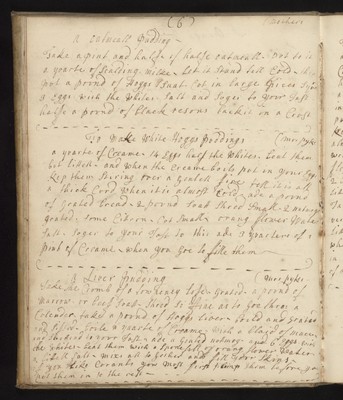 (6)
A oatmeall Pudding
Take a pint and halfe of halfe oatmeall. Put to it
a quarte of Boulding milke. Let it stand tell Cold. then
put a pound of Hoggs Suat Cot in large Pieces
8 Eggs with the Whites. Salt and Soger to your Tast
halfe a pound of black resons baked in a Crust
To Make White Hoggs Poodings (Mers
a quarte of Creame. 12 Eggs halfe the Whites. Beat them
but littell. and when the Creame boils put in your Eggs
Keep them Stiring over a gentell fire tell it is all
a thick Cord. when it is almost Cold. ade a pound
of grated bread. 2 pound Suat Shred Small. 2 nutmegs
grated, some Citorn. Cot Small. orang flower Water
Salt. Soger to your Tast to this ade 3 quarters of a
pint of Creame. when you goe to fille them
A Liver Pudding (Mers
Take the Cromb of a Peney lofe. Grated. a pound of
Marrow. or beef Suet. Shred so fine as to goe throo a
Colender. take a pound of Hoggs liver. boiled and grated
and sifted. boile a quarte of Creame. with a blaid of mace.
and Sweeten it to your Tast. ade a grated nutmeg. and 6 Eggs with
the Whites. beat them with a Spoonfull of orang flower Water.
a littell Salt. mixe all to gether and fill your Skins.
if you like Corants you most first plump them before you
put them in to the rest